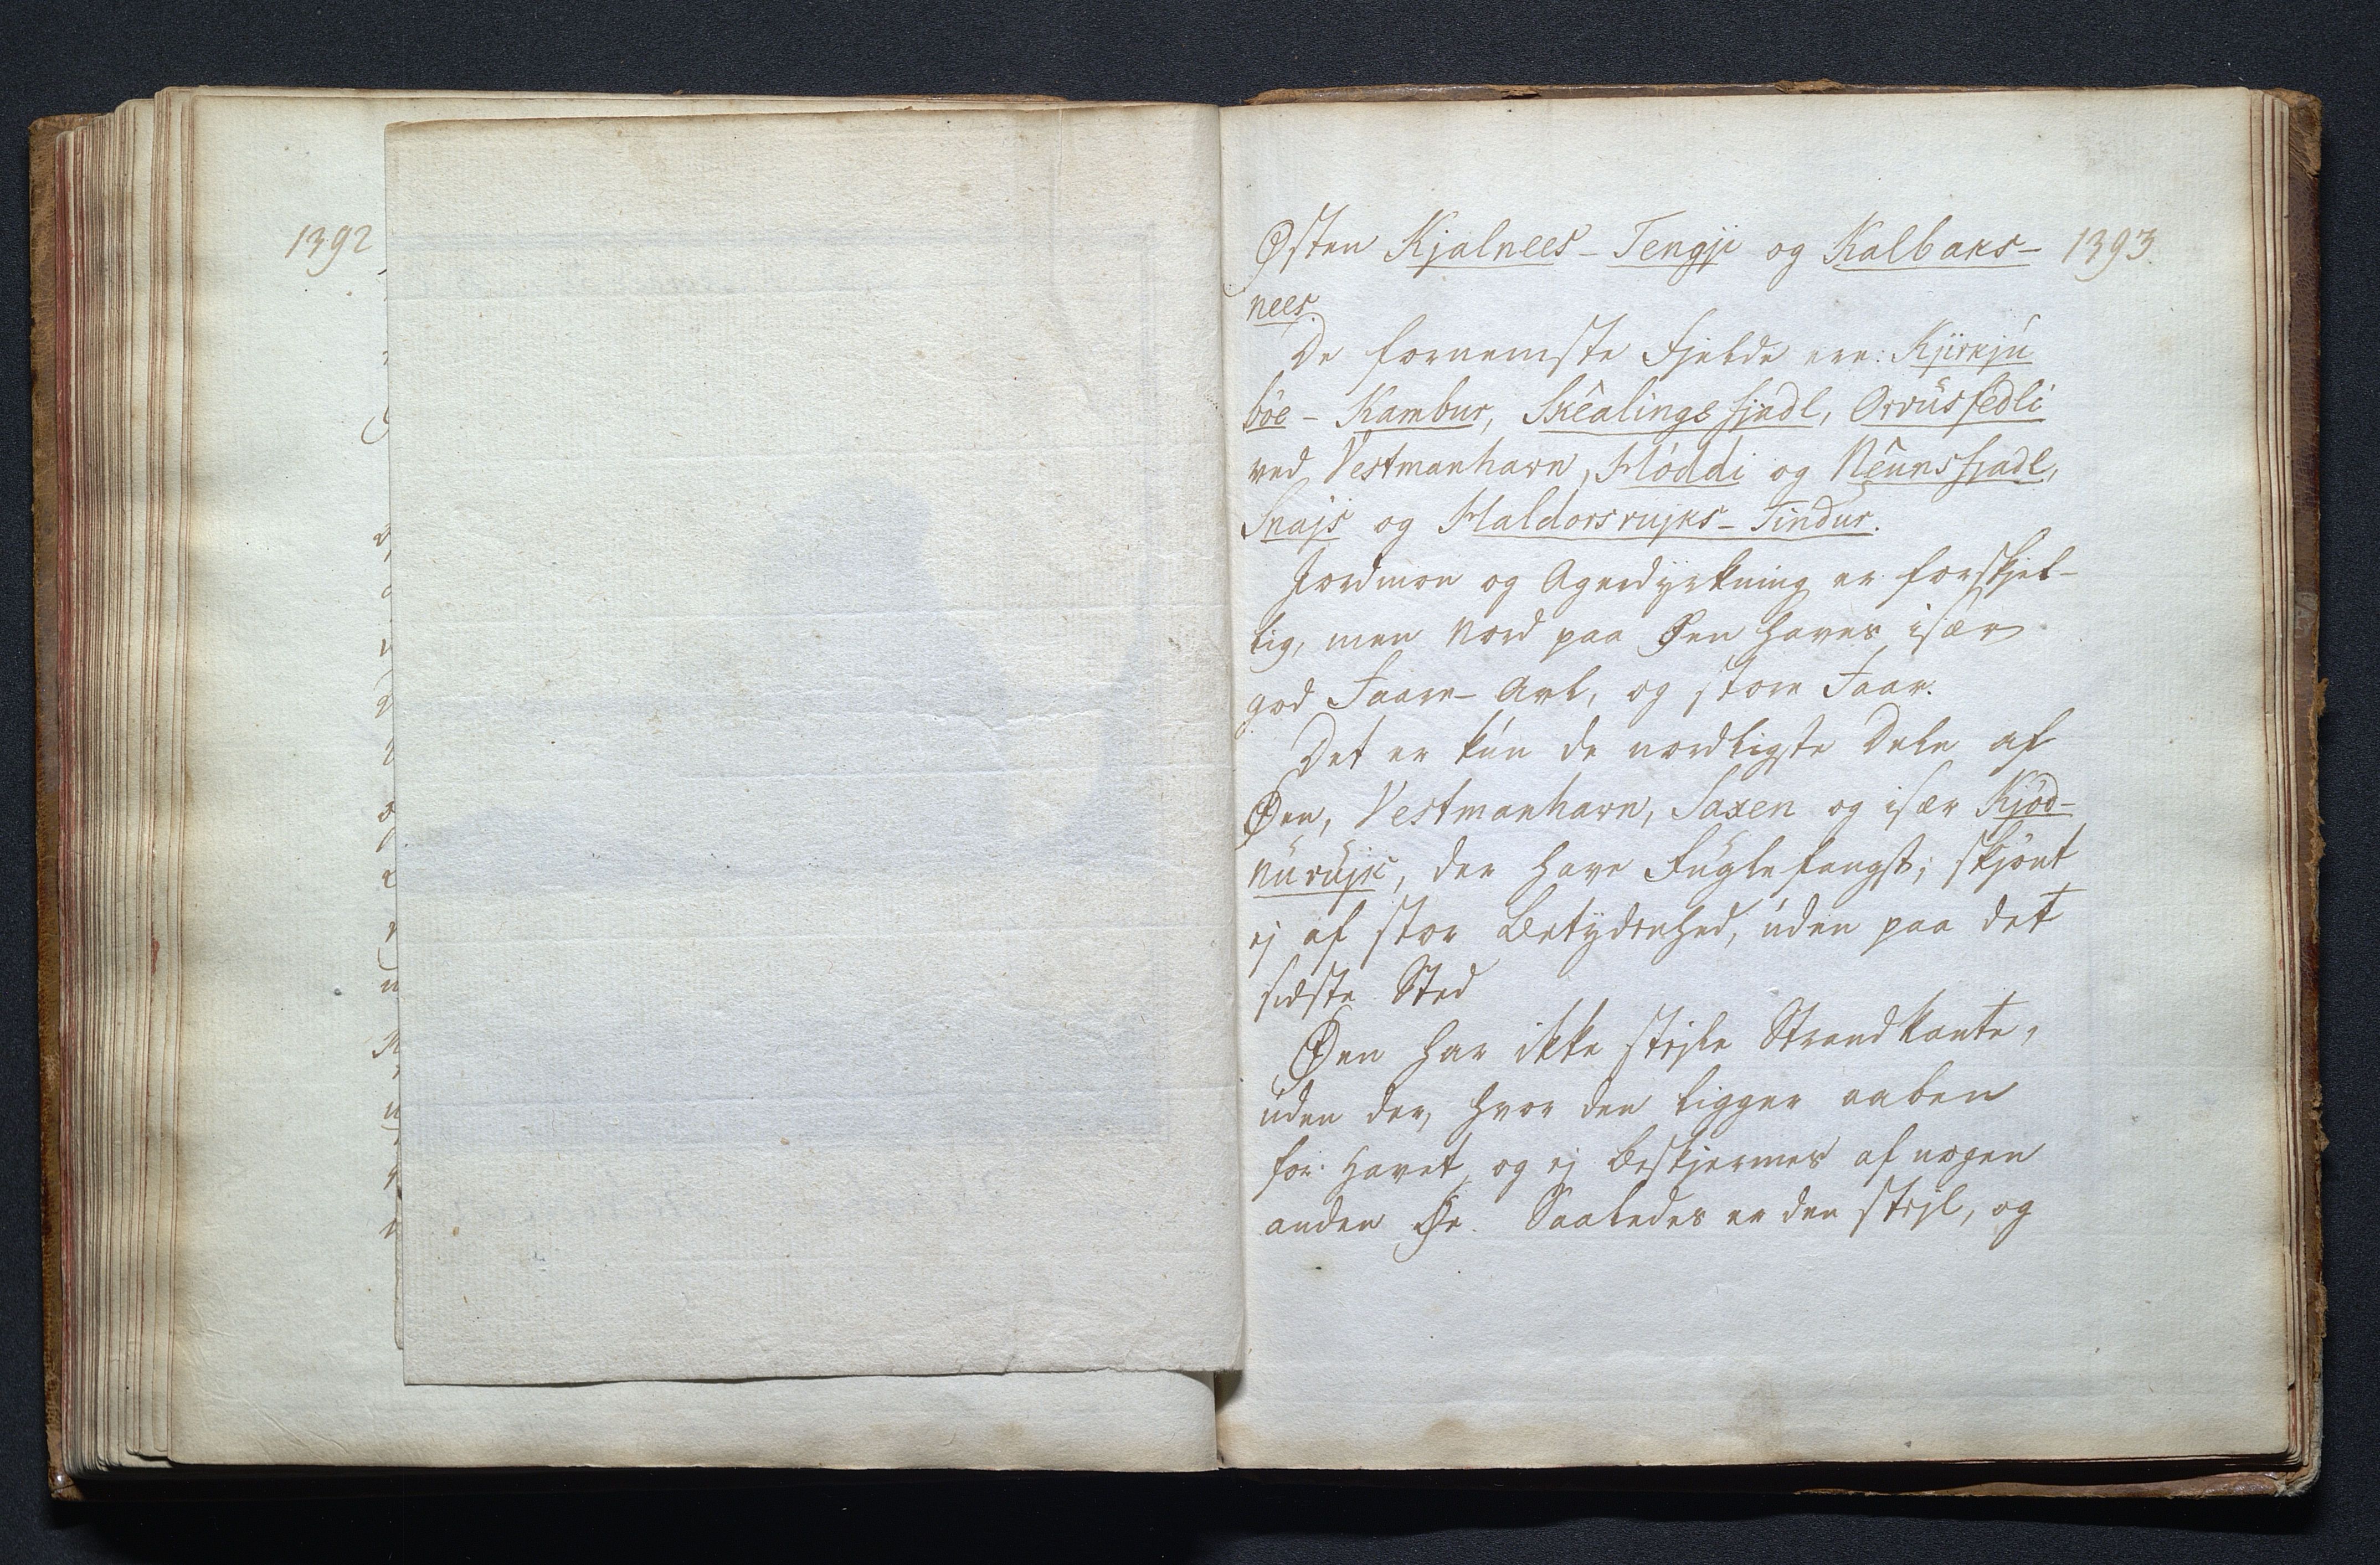 1392
Østen Kjalnees-Tengji og Kalbaks- 1393.
nees.
De fornemste Fjelde ere: Kjirkju
böe-Kambur, Skêalingsfjadl, Orvusfedli
ved Vestmanhavn, Höddi og Nêunsfjadl,
Snajs og Haldorsvujks-Tindur.
Jordmon og Agerdyrkning er forskjel-
lig, men Nord paa Øen haves især
god Faare-Avl, og store Faar.
Det er kun de nordligste Dele af
Øen, Vestmanhavn, Saxen og især Kjöd-
nuvujk, der have Fuglefangst; skjönt
ej af stor Betydenhed, uden paa det
sidste Sted
Øen har ikke stejle Strandkante,
uden der, hvor den ligger aaben
for Havet, og ej beskjermes af nogen
anden Øe. Saaledes er den stejl, og